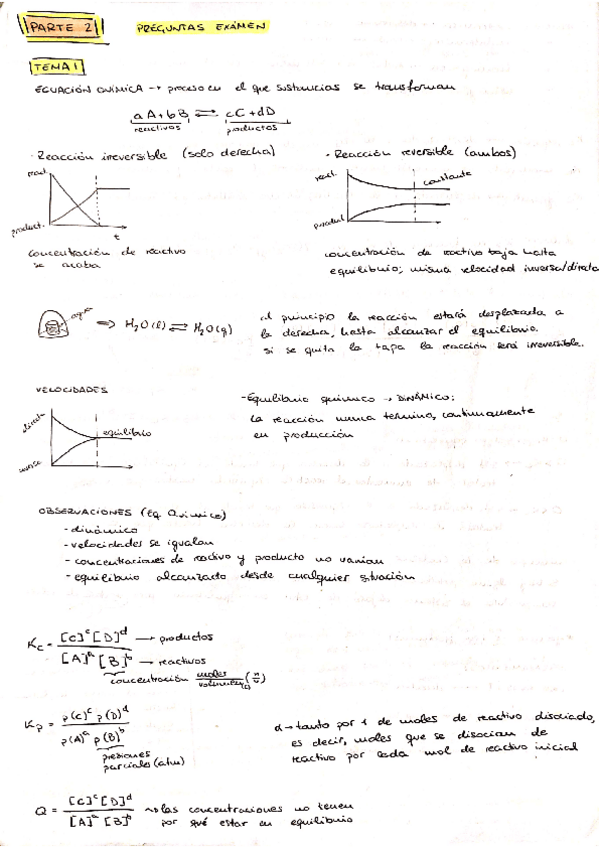 PARTE 2 PREGUNTAS EXÁMEN
TEMA 1
ECUACIÓN QUÍMICA → proceso en el que sustancias se transforman
aA + bB ⇌ cC + dD
reactivos productos
- Reacción irreversible (solo derecha)
react.
product.
t
concentración de reactivo
se acaba
- Reacción reversible (ambos)
react.
constante
product
concentración de reactivo baja hasta
equilibrio; misma velocidad inversa/directa
agua
⇒ H₂O(l) ⇌ H₂O(g)
al principio la reacción estará desplazada a
la derecha, hasta alcanzar el equilibrio.
si se quita la tapa la reacción será irreversible.
VELOCIDADES
directa
equilibrio
inversa
- Equilibrio químico → DINÁMICO:
la reacción nunca termina, continuamente
en producción
OBSERVACIONES (Eq. Químico)
- dinámico
- velocidades se igualan
- concentraciones de reactivo y producto no varían
- equilibrio alcanzado desde cualquier situación
Kc = [C]ᶜ[D]ᵈ → productos
[A]ᵃ[B]ᵇ → reactivos
concentración moles/volumen(L) (n/v)
Kp = p(C)ᶜ p(D)ᵈ
p(A)ᵃ p(B)ᵇ
presiones
parciales (atm)
α → tanto por 1 de moles de reactivo disociado,
es decir, moles que se disocian de
reactivo por cada mol de reactivo inicial
Q = [C]ᶜ[D]ᵈ
[A]ᵃ[B]ᵇ
→ las concentraciones no tienen
por qué estar en equilibrio